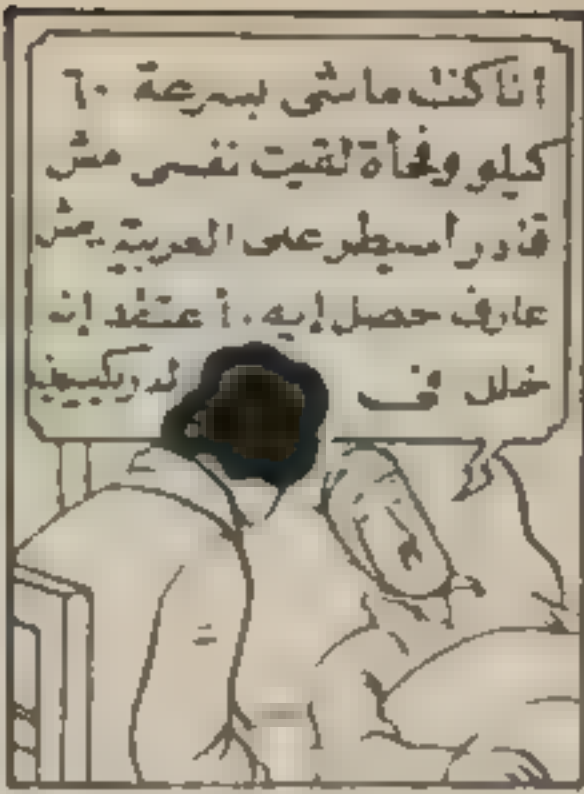 انا كنت ماشى بسرعة ٦٠
كيلو وفجأة لقيت نفسى مش
قادر اسيطر على العربية. مش
عارف حصل ايه. أعتقد إنه
خلل ف